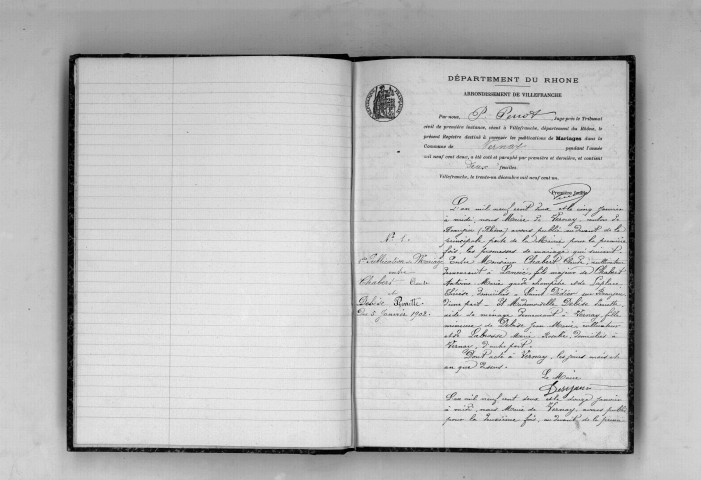 DÉPARTEMENT DU RHONE
ARRONDISSEMENT DE VILLEFRANCHE
Par nous, P. Perrot, Juge près le Tribunal
civil de première instance, séant à Villefranche, département du Rhône, le
présent Registre destiné à recevoir les publications de Mariages dans la
Commune de Vernay pendant l'année
mil neuf cent deux, a été coté et paraphé par première et dernière, et contient
Deux feuilles.
Villefranche, le trente-un décembre mil neuf cent un.
Première feuille
L'an mil neuf cent deux et le cinq janvier
à midi, nous Maire de Vernay, canton de
Beaujeu (Rhône) avons publié au devant de la
principale porte de la Mairie, pour la première
fois, les promesses de mariage qui suivent
N° 1.
1ère Publication de Mariage
entre
Chabert Claude
et
Debise
Du 5 Janvier 1902.
Entre Monsieur Chabert Claude, cultivateur
demeurant à fils majeur de Chabert
Antoine Marie garde champêtre et de
domiciliés à Saint Didier sur Beaujeu
d'une part - Et Mademoiselle Debise
de ménage demeurant à Vernay, fille
mineure de Debise Jean Marie, cultivateur
et de Labrosse Marie domiciliés à
Vernay, d'autre part.
Dont acte à Vernay, les jour, mois et
an que dessus.
Le Maire
L'an mil neuf cent deux et le douze janvier
à midi, nous Maire de Vernay, avons publié
pour la deuxième fois, au devant de la